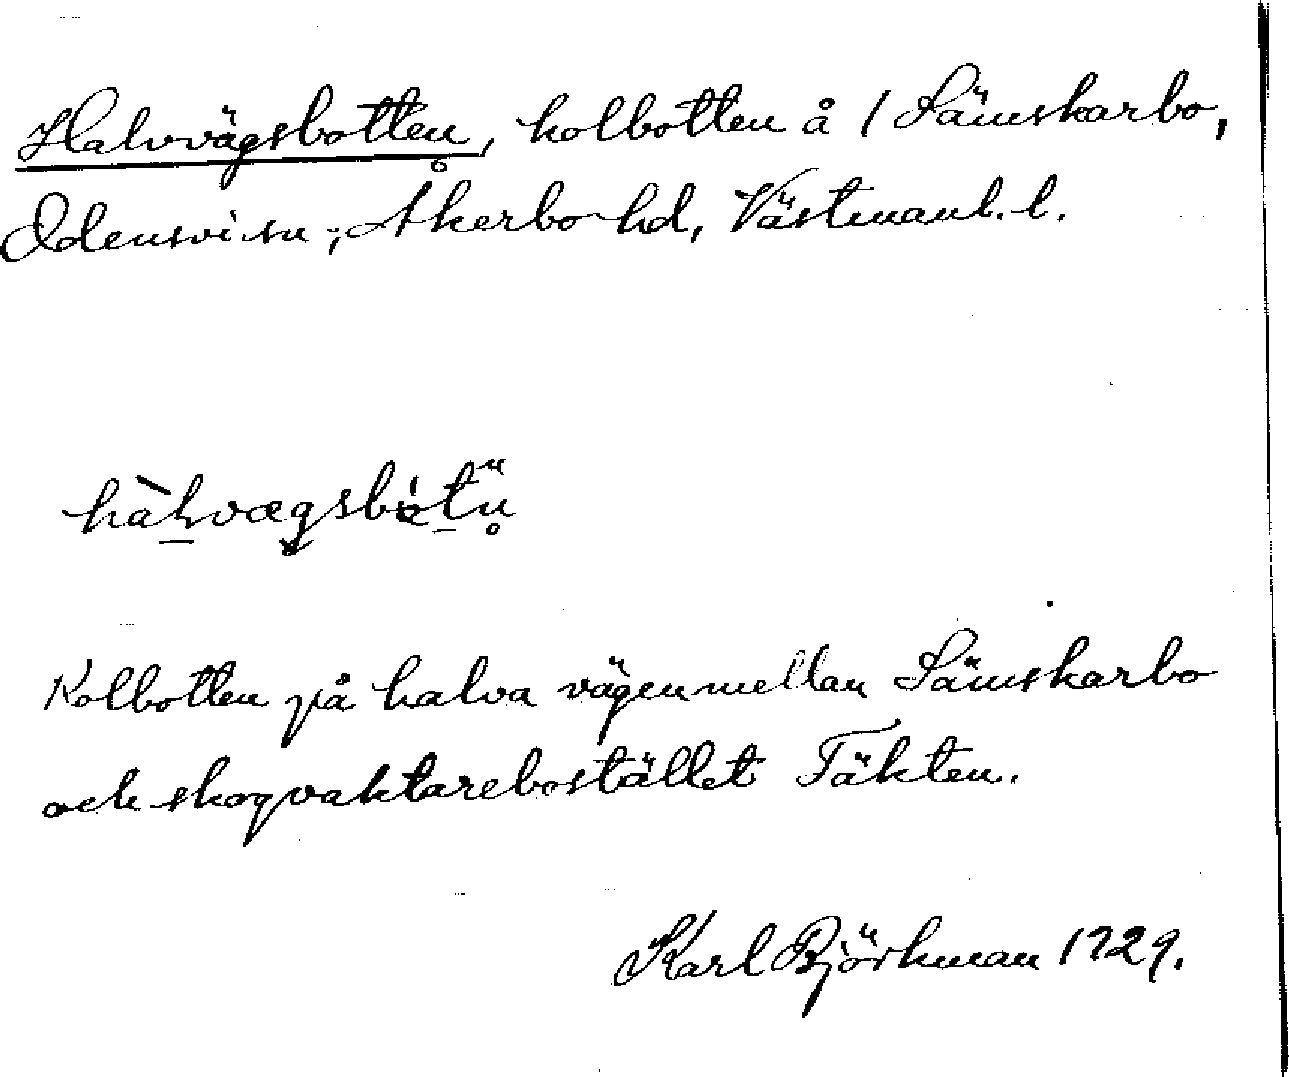 Halvvägsbotten, kolbotten å / Sämskarbo,
Odensvi sn, Åkerbo hd, Västmanl. l.
hàlvægsbòtn̥
Kolbotten på halva vägen mellan Sämskarbo
och skogvaktarebostället Täkten.
Karl Björkman 1929.